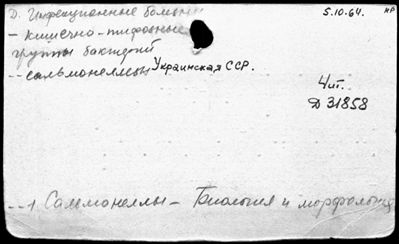 Д. Инфекционные болезни
5.10.64.
НВ
- кишечно-тифозные
группы бактерий
-- сальмонеллы Украинская ССР.
4 ит.
Д 31858
--1 Сальмонеллы - Биология и морфология